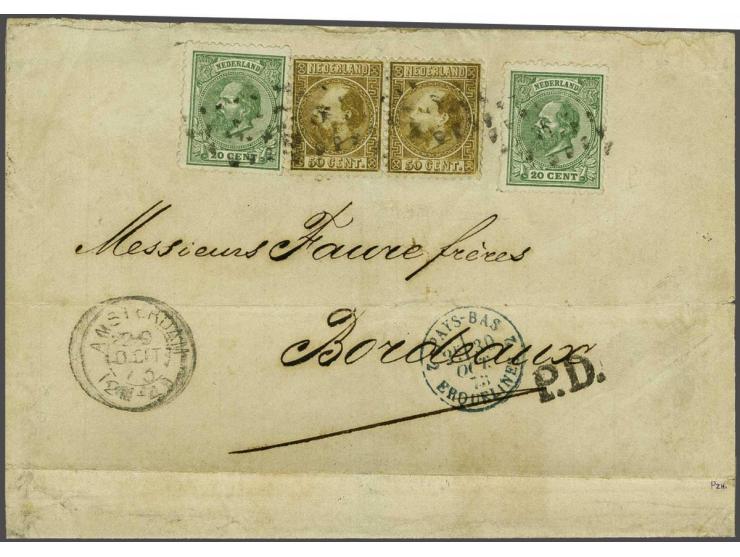 NEDERLAND
20 CENT
NEDERLAND
50 CENT.
NEDERLAND
50 CENT.
NEDERLAND
20 CENT
Messieurs Faure frères
Bordeaux
AMSTERDAM
PAYS-BAS
30
OCT.
ERQUELINES
P.D.
PZH.